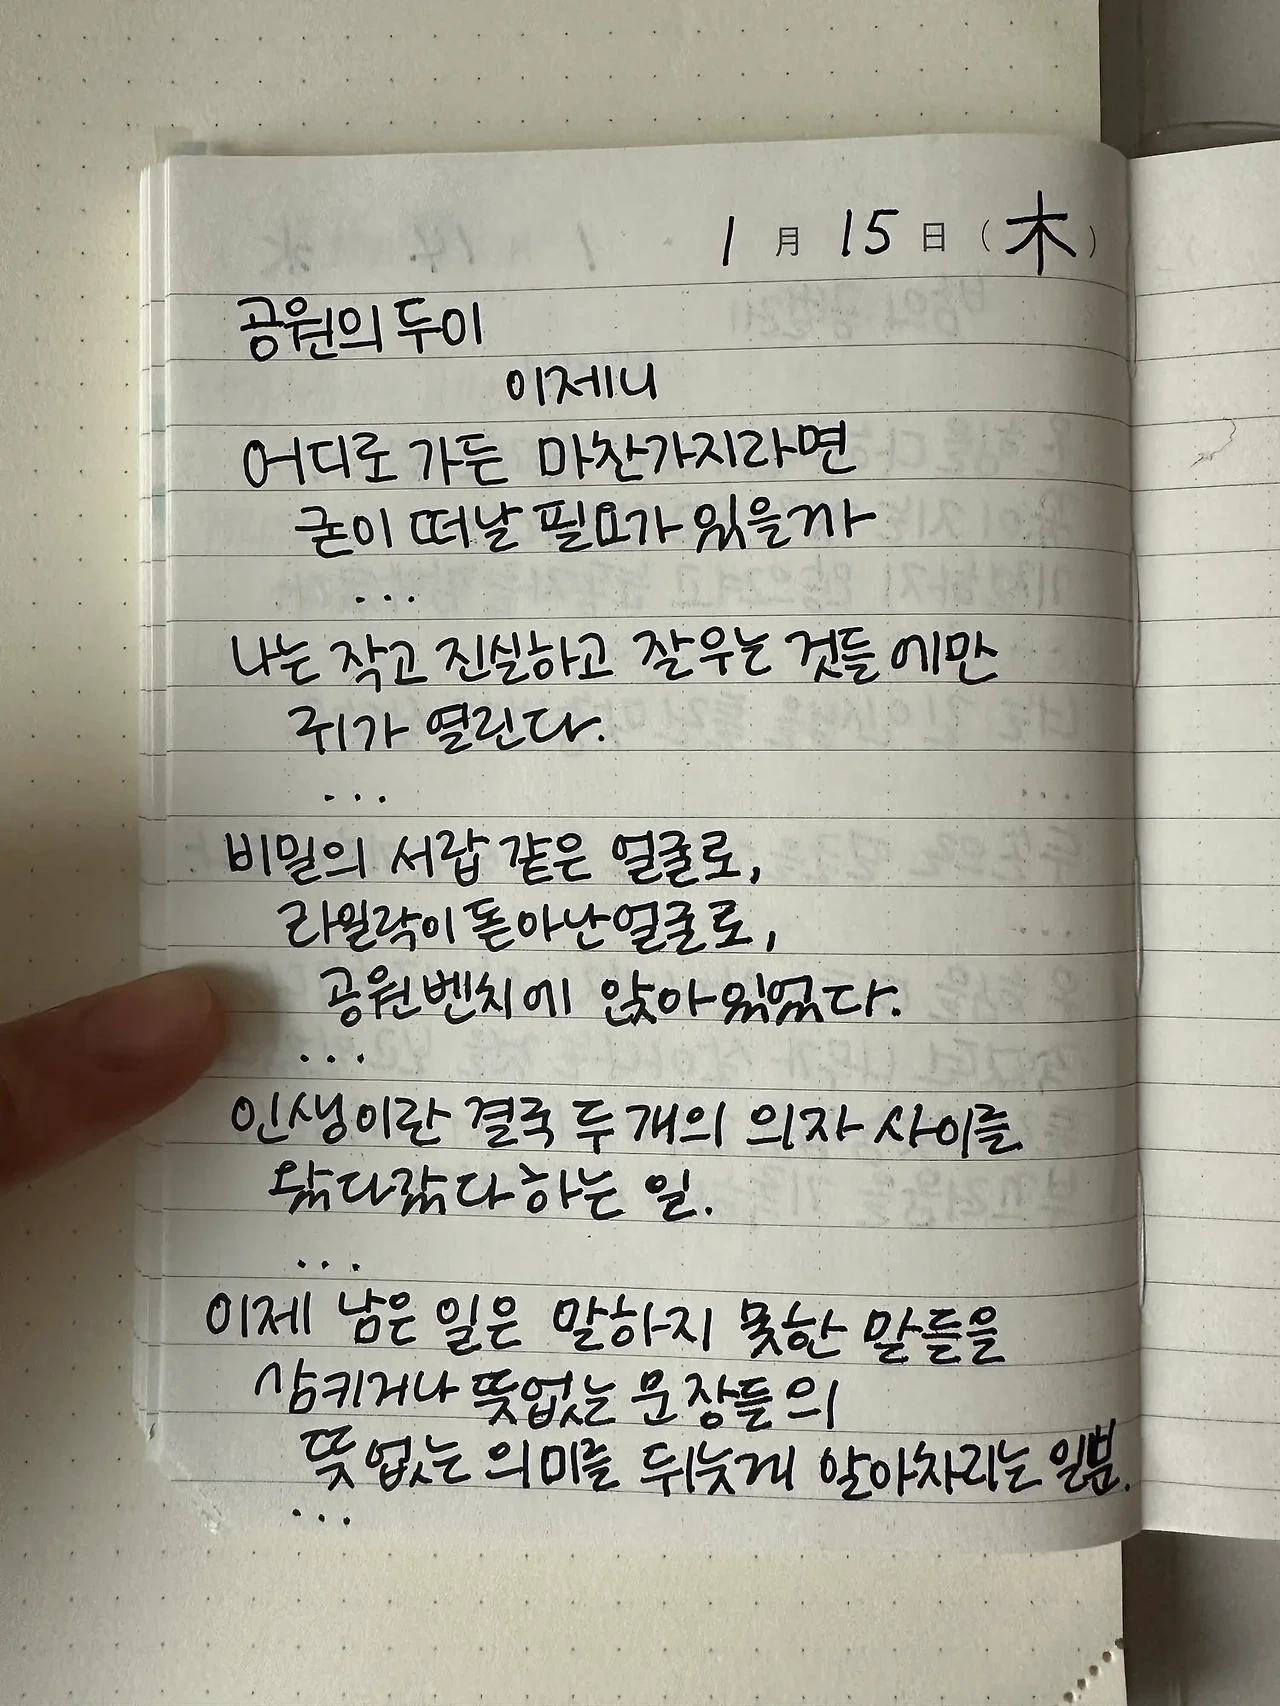 1 月 15 日 (木)
공원의 두이
이제니
어디로 가든 마찬가지라면
굳이 떠날 필요가 있을까
...
나는 작고 진실하고 잘 우는 것들에만
귀가 열린다.
...
비밀의 서랍 같은 얼굴로,
라일락이 돋아난 얼굴로,
공원 벤치에 앉아 있었다.
...
인생이란 결국 두 개의 의자 사이를
왔다갔다 하는 일.
...
이제 남은 일은 말하지 못한 말들을
삼키거나 뜻없는 문장들의
뜻 없는 의미를 뒤늦게 알아차리는 일뿐.
...